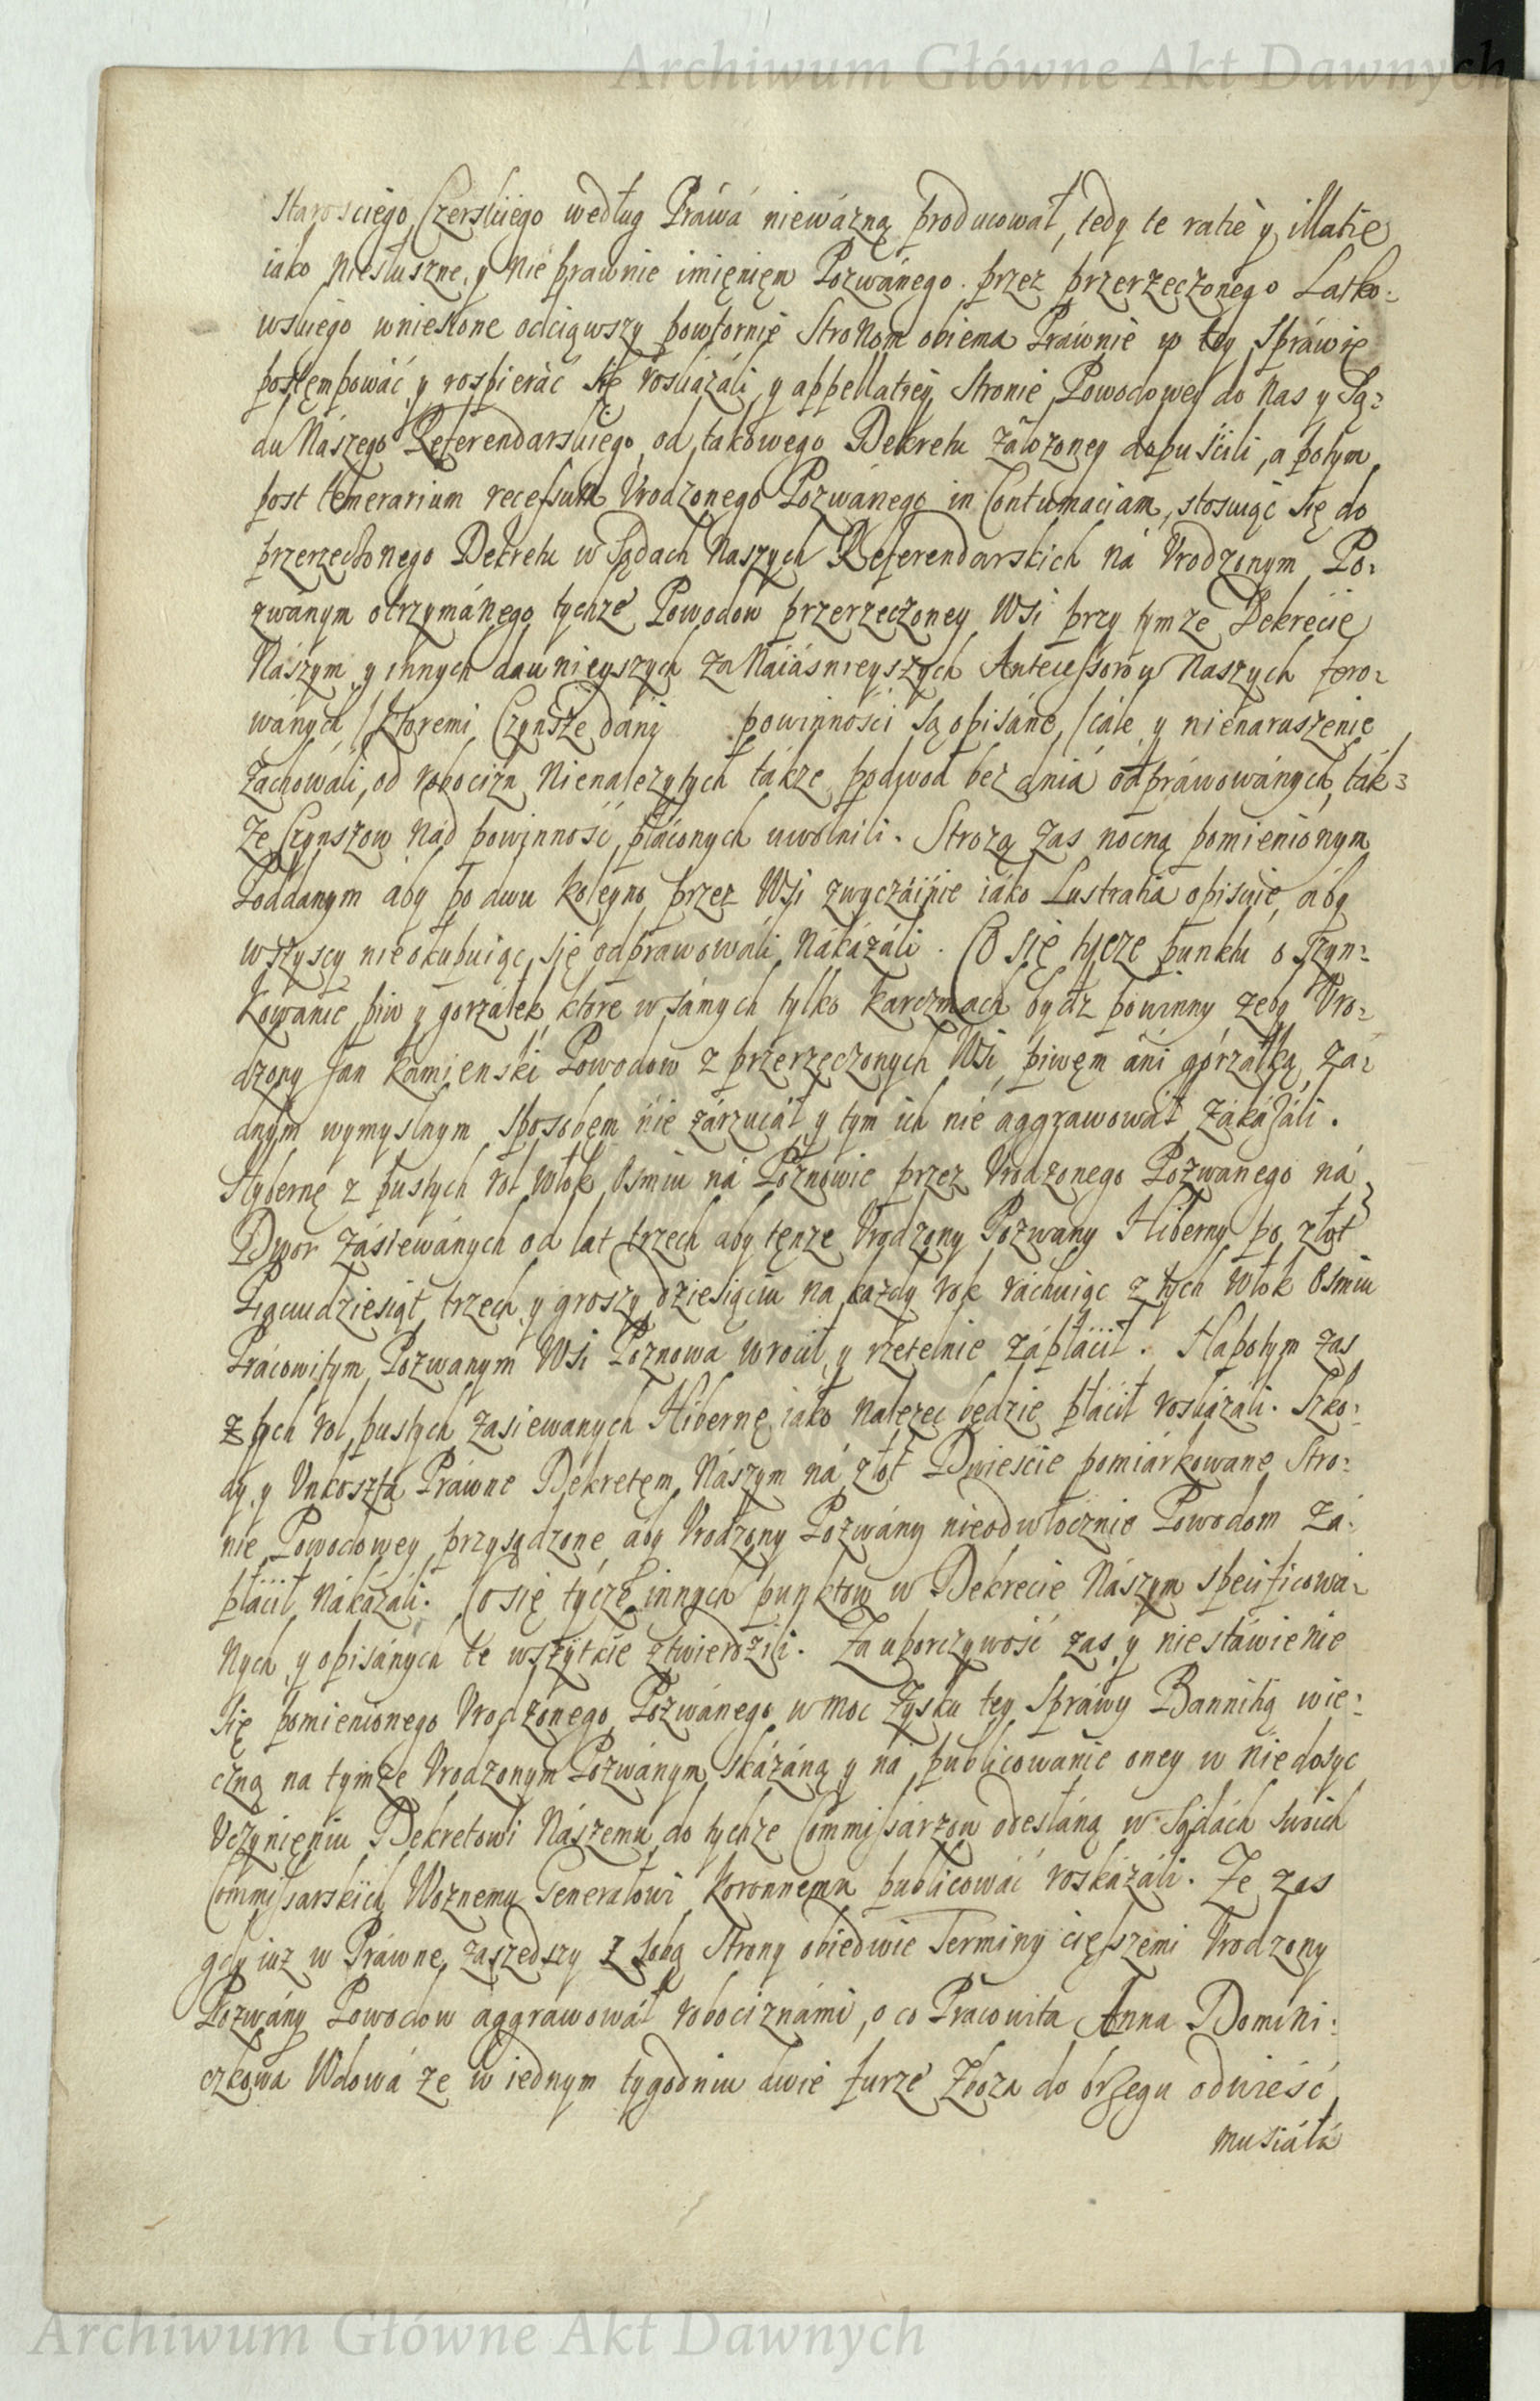 Archiwum Główne Akt Dawnych
Starosciego Czerskiego według Práwá nieważną producował, tedy te ratie y illatie
iako niesłuszne y nie prawnie imięnięm Pozwánego przez przerzeczonego Lasko-
wskiego wniesione odciąwszy powtornie Stronom obiema Práwnie w tey Spráwie
postęmpowáć y rospieráć się roskázáli y appellatiey Stronie Powodowey do Nas y Są-
du Nászego Referendarskiego od takowego Dekretu záłozoney dopuścili, a potym
post temerarium recessum Vrodzonego Pozwánego in Contumaciam, stosuiąc się do
przerzeczonego Dekretu w Sądach Naszych Referendarskich ná Vrodzonym Po-
zwánym otrzymánego tychze Powodow przerzeczoney Wsi przy tymze Dekrecie
Nászym y innych dawnieyszych za Náiásnieyszych Antecessorow Naszych fero-
wánych, ktoremi Czynsze dáni powinności są opisáne, cále y nienaruszenie
záchowáli, od robocizn nienalezytych tákze podwod bez dniá odpráwowánych, ták-
że Czynszow nád powinność płáconych uwolnili. Strożą zas nocną pomienionym
Poddanym aby po dwu koleyno przez Wsi zwyczáinie iáko Lustratia opisuie, áby
wszyscy nieokupuiąc się odprawowáli nákázáli. Co się tycze punktu o szyn-
kowánie piw y gorzałek, ktore w sámych tylko karczmach bydz powinny zeby Vro-
dzony Jan Kámienski Powodow z przerzeczonych Wsi, piwęm áni gorzałką, żá-
dnym wymyslnym sposobem nie zárzucáł y tym ich nie aggrawowáł zákázáli.
Hybernę z pustych rol włok Osmiu ná Poznowie przez Vrodzonego Pozwanego ná
Dwor zásiewánych od lat trzech aby tęnze Vrodzony Pozwany Hiberny po złot
Piąciudziesiąt trzech y groszy dziesiąciu na kazdy rok ráchuiąc z tych włok Osmiu
Prácowitym Pozwanym Wsi Poznowa wrocił y rzetelnie zápłácił. Napotym zas
z tych rol pustych zasiewanych Hibernę iáko nalezec będzie płácił roskázáli. Szko-
dy y Vnkoszta Práwne Dekretęm Nászym ná złot Dwiescie pomiárkowane Stro-
nie Powodowey przysądzone aby Vrodzony Pozwány nieodwłocznie Powodom zá-
płácił nákázáli. Co się tycze innych punktow w Dekrecie Nászym specificowá-
nych y opisánych te wszytkie ztwierdzili. Za uporczywość zas y niestáwienie
się pomienionego Vrodzonego Pozwánego w moc zysku tey Spráwy Bannitią wie-
czną na tymze Vrodzonym Pozwánym skázáną y ná publicowánie oney w niedosyc
Vczynięniu Dekretowi Nászemu do tychze Commissárzow odesłáną w Sądách swoich
Commissarskich Woznemu Generałowi Koronnemu publicowáć roskázáli. Ze zas
gdy iuz w Práwne zaszedszy z sobą Strony obiedwie Terminy cięszemi Vrodzony
Pozwány Powodow aggrawowáł robociznámi, o co Pracowita Anna Domini-
czkowa Wdowá ze w iednym tygodniu dwie furze zboza do brzegu odwieść
musiáłá
Archiwum Główne Akt Dawnych